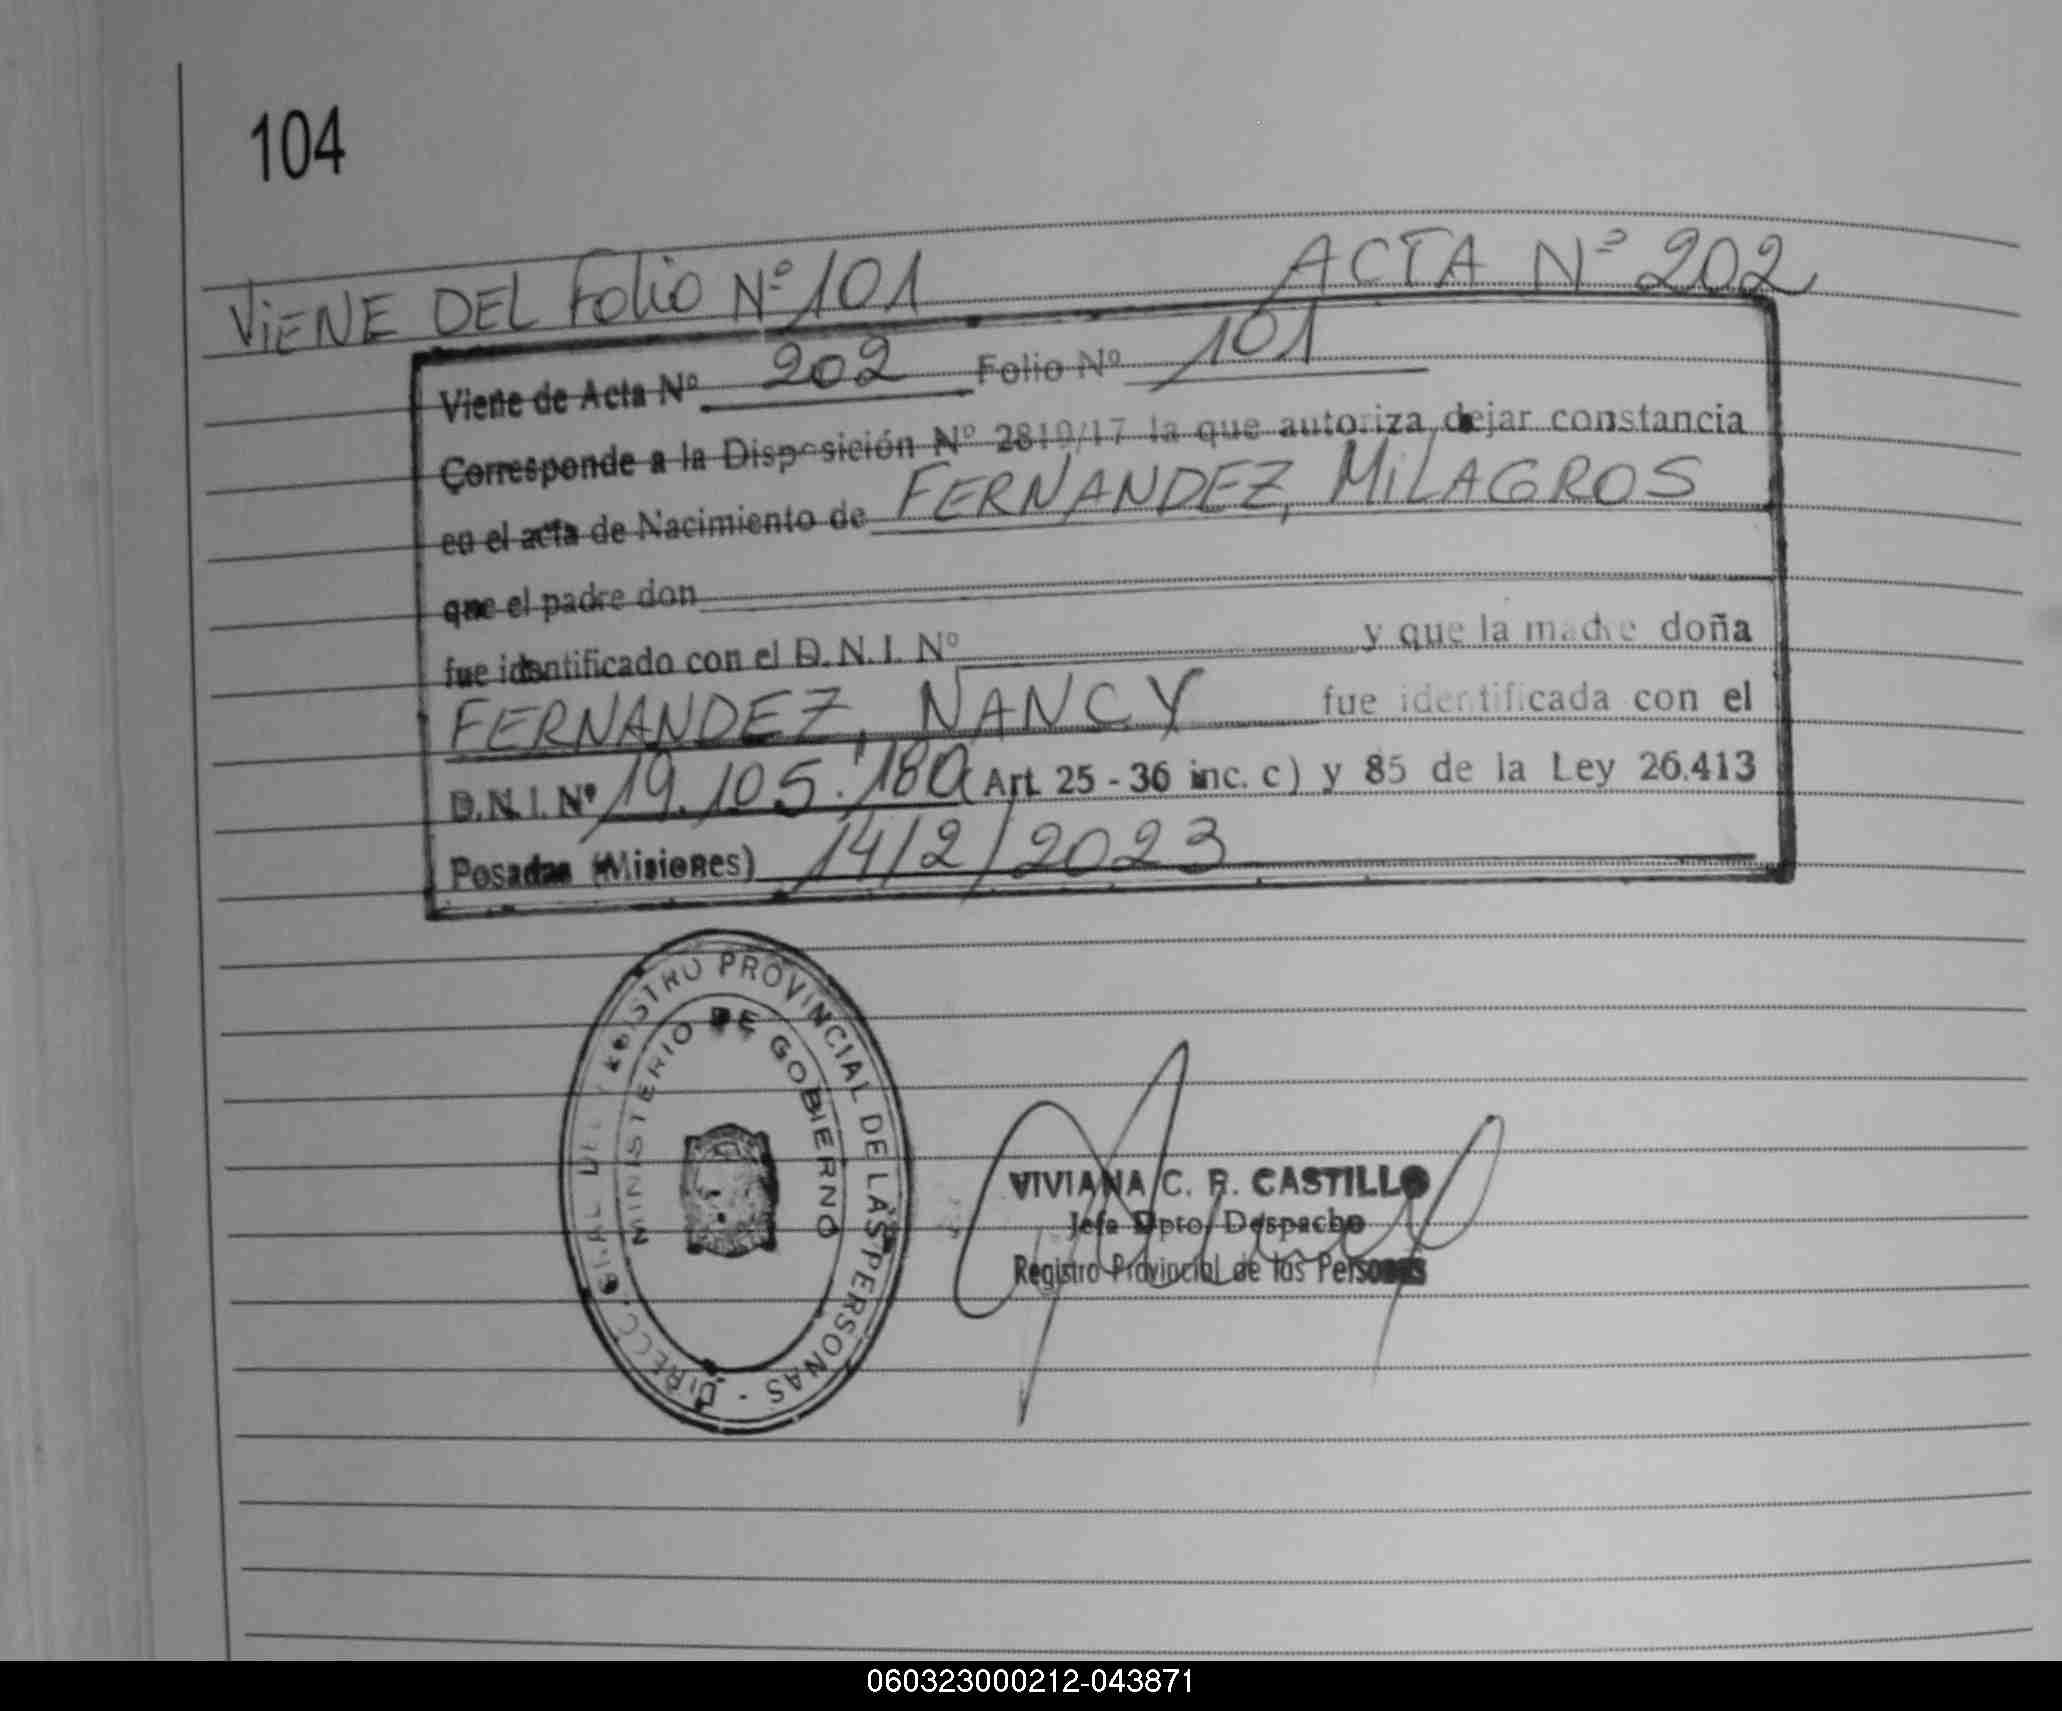 104
ViENE DEL Folio Nº 101 ACTA Nº 202
Viene de Acta Nº 202 Folio Nº 101
Corresponde a la Disposición Nº 2819/17 la que autoriza dejar constancia
en el acta de Nacimiento de FERNANDEZ, MiLAGROS
que el padre don
fue identificado con el D.N.I. Nº y que la madre doña
FERNANDEZ, NANCY fue identificada con el
D.N.I. Nº 19.105.180 (Art. 25 - 36 inc. c) y 85 de la Ley 26.413
Posadas (Misiones) 14/2/2023
DIRECC GRAL DEL REGISTRO PROVINCIAL DE LAS PERSONAS -
MINISTERIO DE GOBIERNO
VIVIANA C. R. CASTILLO
Jefa Dpto. Despacho
Registro Provincial de las Personas
060323000212-043871